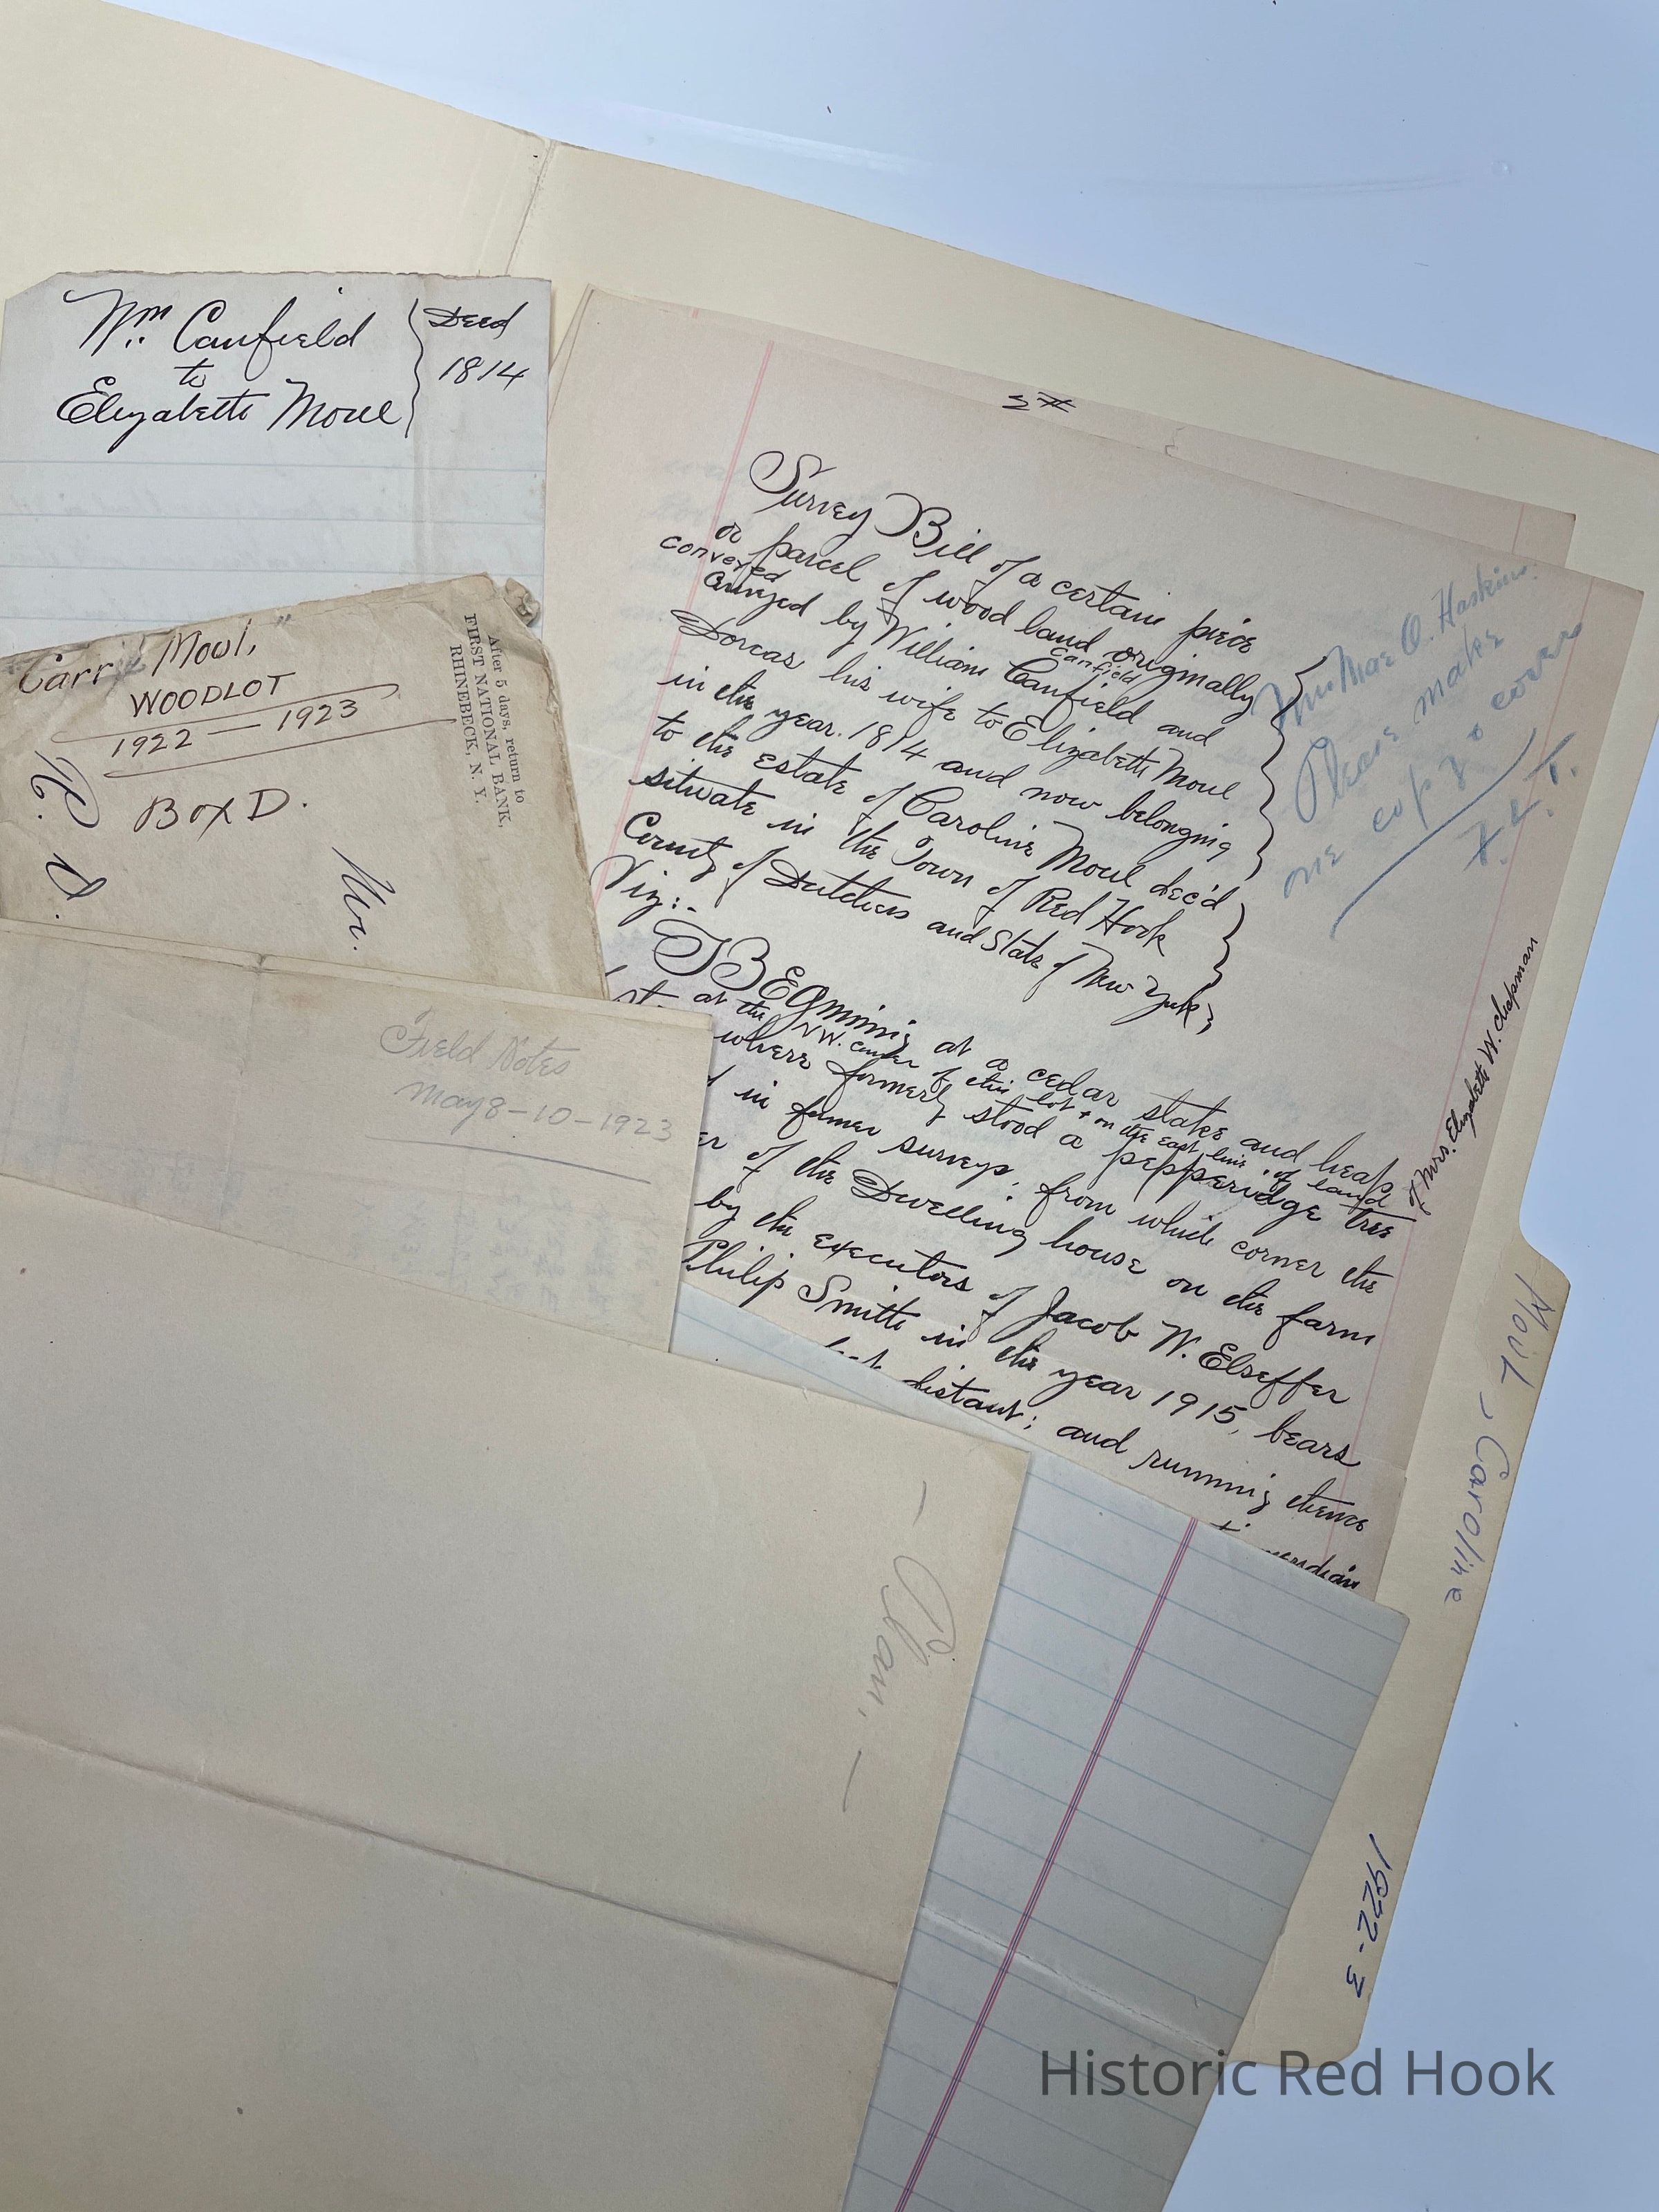 Wm. Canfield
to
Elizabeth Moul
Deed
1814
Moul,"
WOODLOT
1922 — 1923
Box D.
After 5 days, return to
FIRST NATIONAL BANK,
RHINEBECK, N. Y.
Mr.
Field Notes
May 8-10-1923
- Plan. -
2
Survey Bill of a certain piece
or parcel of wood land originally
conveyed
by William Canfield and
Canfield
Dorcas his wife to Elizabeth Moul
in the year. 1814 and now belonging
to the estate of Caroline Moul dec'd
situate in the Town of Red Hook
County of Dutchess and State of New York,
Viz:-
BEginning at a cedar stake and heap
at the NW. corner of this lot + on the east line of land
where formerly stood a pepperidge tree
in former surveys, from which corner the
of the Dwelling house on the farm
by the executors of Jacob W. Elseffer
Philip Smith in the year 1915, bears
distant; and running thence
meridian
Mae O. Haskins
Please make
me copy + cover
of Mrs. Elizabeth W. Chapman
Moul, Caroline
1922-3
Historic Red Hook